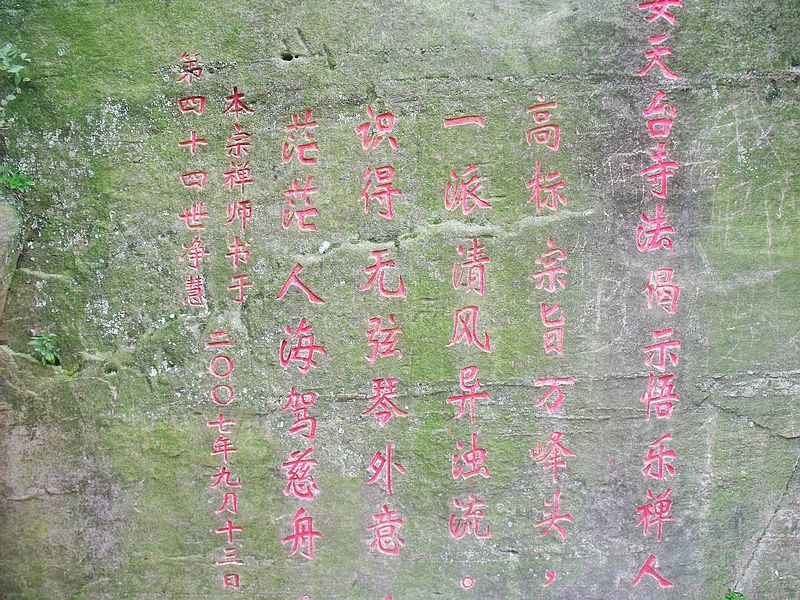 安天台寺法偈示悟乐禅人
高标宗旨万峰头，
一派清风异浊流。
识得无弦琴外意，
茫茫人海驾慈舟。
本宗禅师书于
第四十四世净慧
二〇〇七年九月十三日